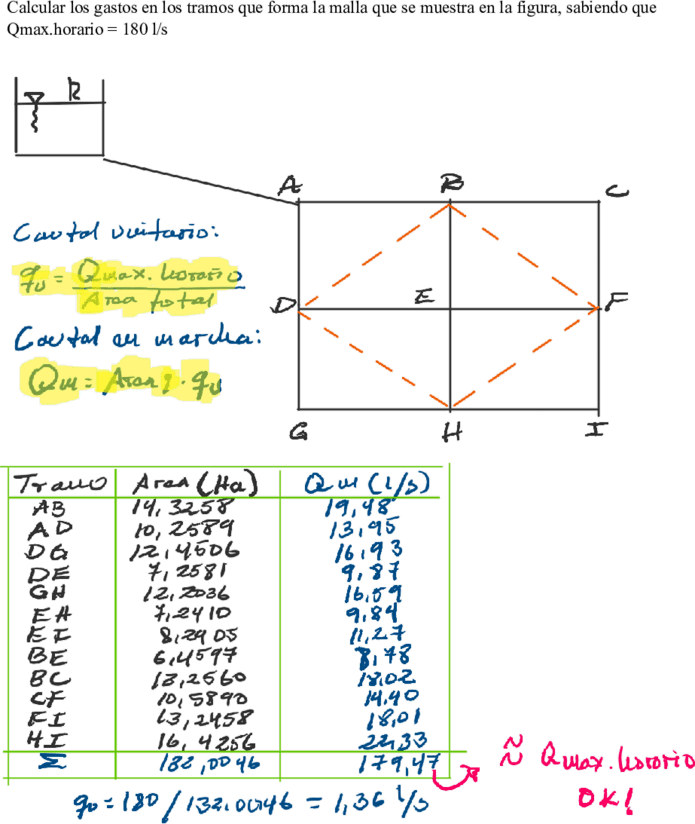 Calcular los gastos en los tramos que forma la malla que se muestra en la figura, sabiendo que
Qmax.horario = 180 l/s
R
A B C
Caudal unitario:
qu = Qmax.horario / Area total
D E F
Caudal en marcha:
Qm = Area i · qu
G H I
Tramo Area (Ha) Qm (l/s)
AB 14,3258 19,48
AD 10,2589 13,95
DG 12,4506 16,93
DE 7,2581 9,87
GH 12,2036 16,59
EH 7,2410 9,84
EF 8,2905 11,27
BE 6,4597 8,78
BC 13,2560 18,02
CF 10,5890 14,40
FI 13,2458 18,01
HI 16,4256 22,33
Σ 132,0046 179,47
≈ Qmax.horario
OK!
qu = 180 / 132.0046 = 1,36 l/s